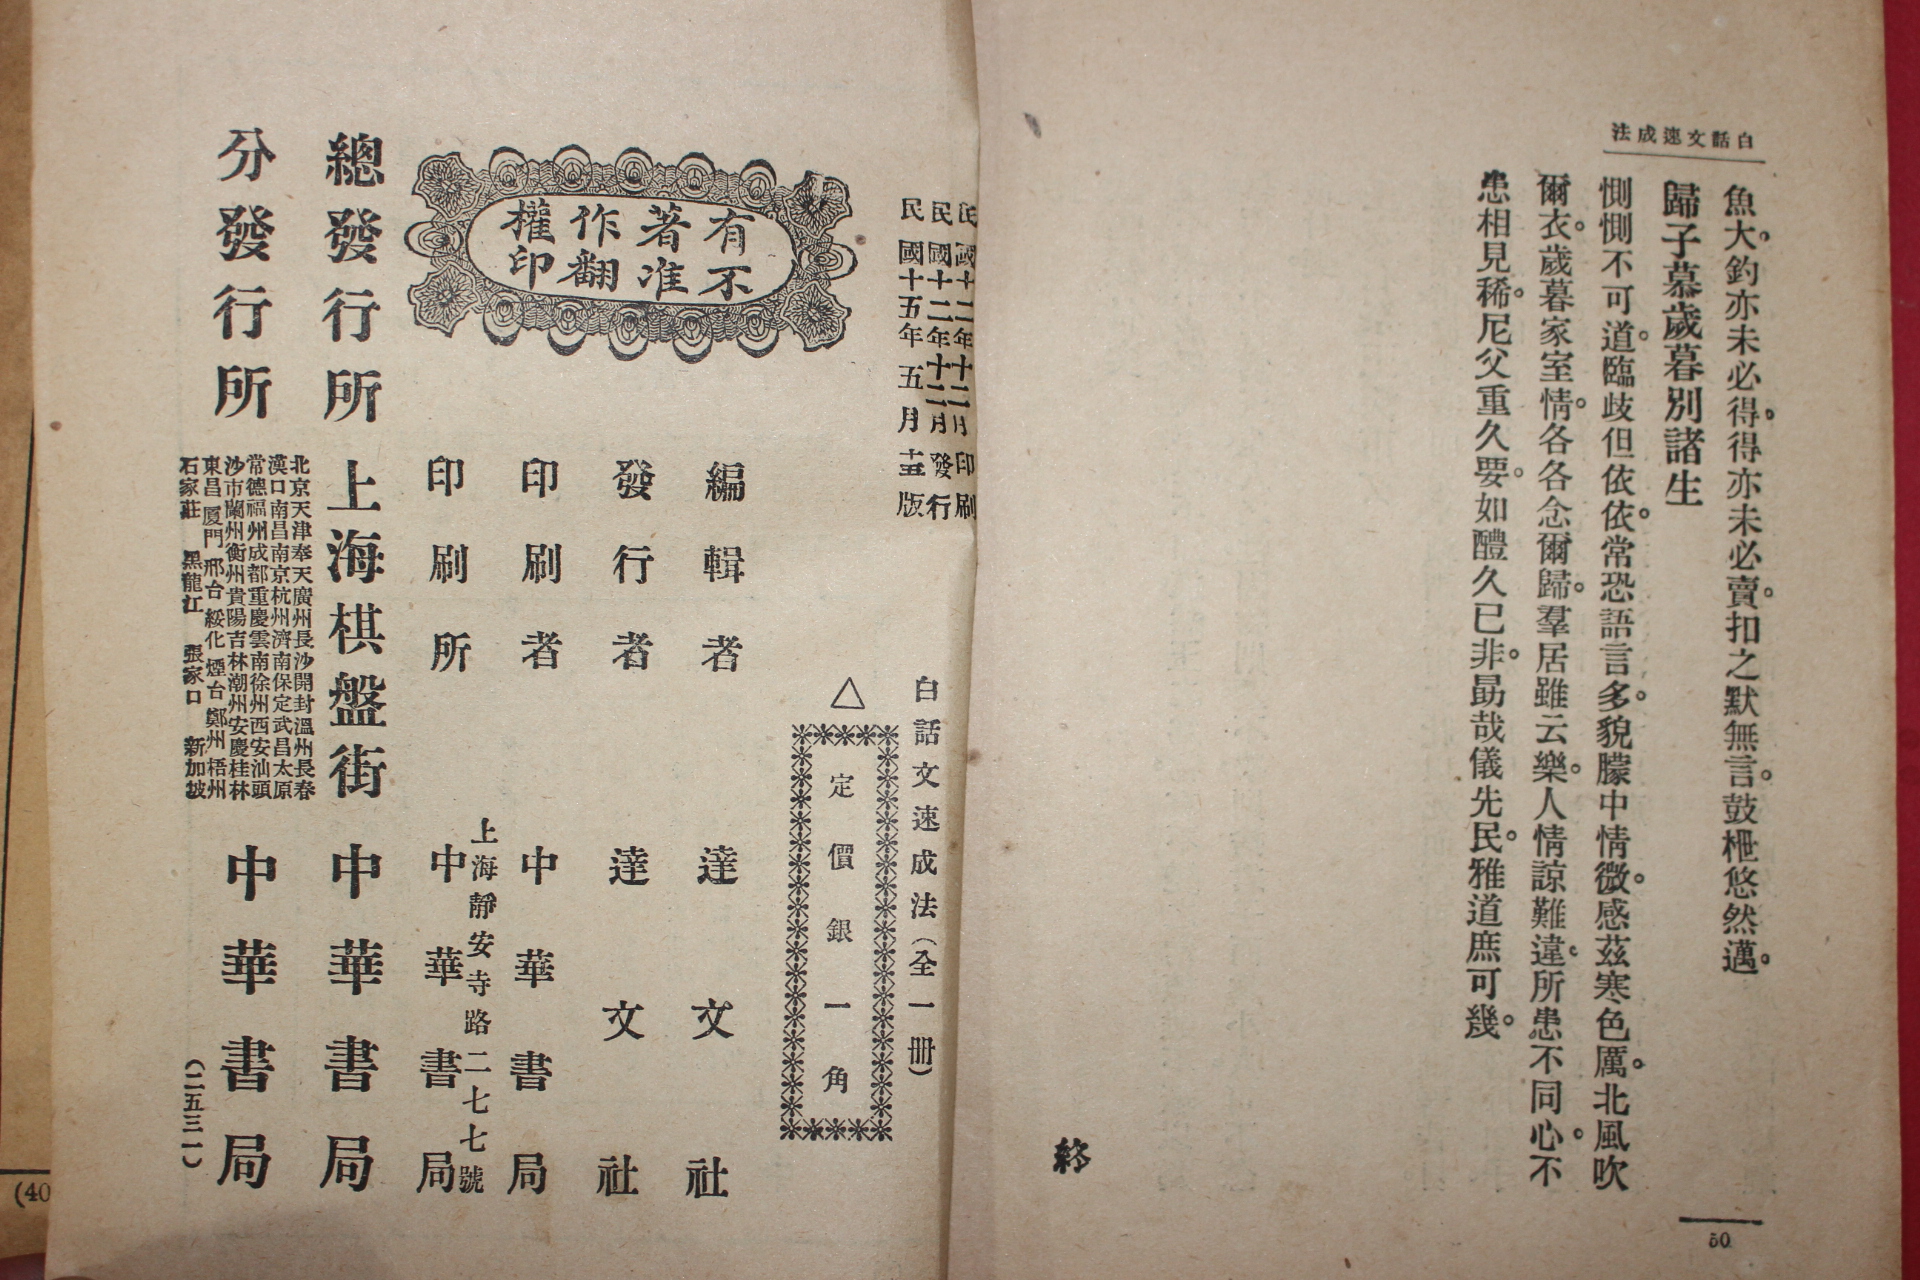 白話文速成法
魚大。釣亦未必得。得亦未必賣。扣之默無言。鼓枻悠然邁。
歸子慕歲暮別諸生
惻惻不可道。臨歧但依依。常恐語言多。貌朦中情微。感茲寒色厲。北風吹
爾衣。歲暮家室情。各各念爾歸。羣居雖云樂。人情諒難違。所患不同心。不
患相見稀。尼父重久要。如醴久已非。勗哉儀先民。雅道庶可幾。
終
50
民國十二年十二月印刷
民國十二年十二月發行
民國十五年五月十五版
有著作權
不准翻印
白話文速成法（全一册）
△
定價銀一角
編輯者 達文社
發行者 達文社
印刷者 中華書局
上海靜安寺路二七七號
印刷所 中華書局
總發行所 上海棋盤街 中華書局
分發行所
北京天津奉天廣州長沙開封溫州長春
漢口南昌南京杭州濟南保定武昌太原
常德福州成都重慶雲南徐州西安汕頭
沙市蘭州衡州貴陽吉林潮州安慶桂林
東昌 厦門 邢台 綏化 煙台 鄭州 梧州
石家莊 黑龍江 張家口 新加坡
中華書局
（二五三一）
(40